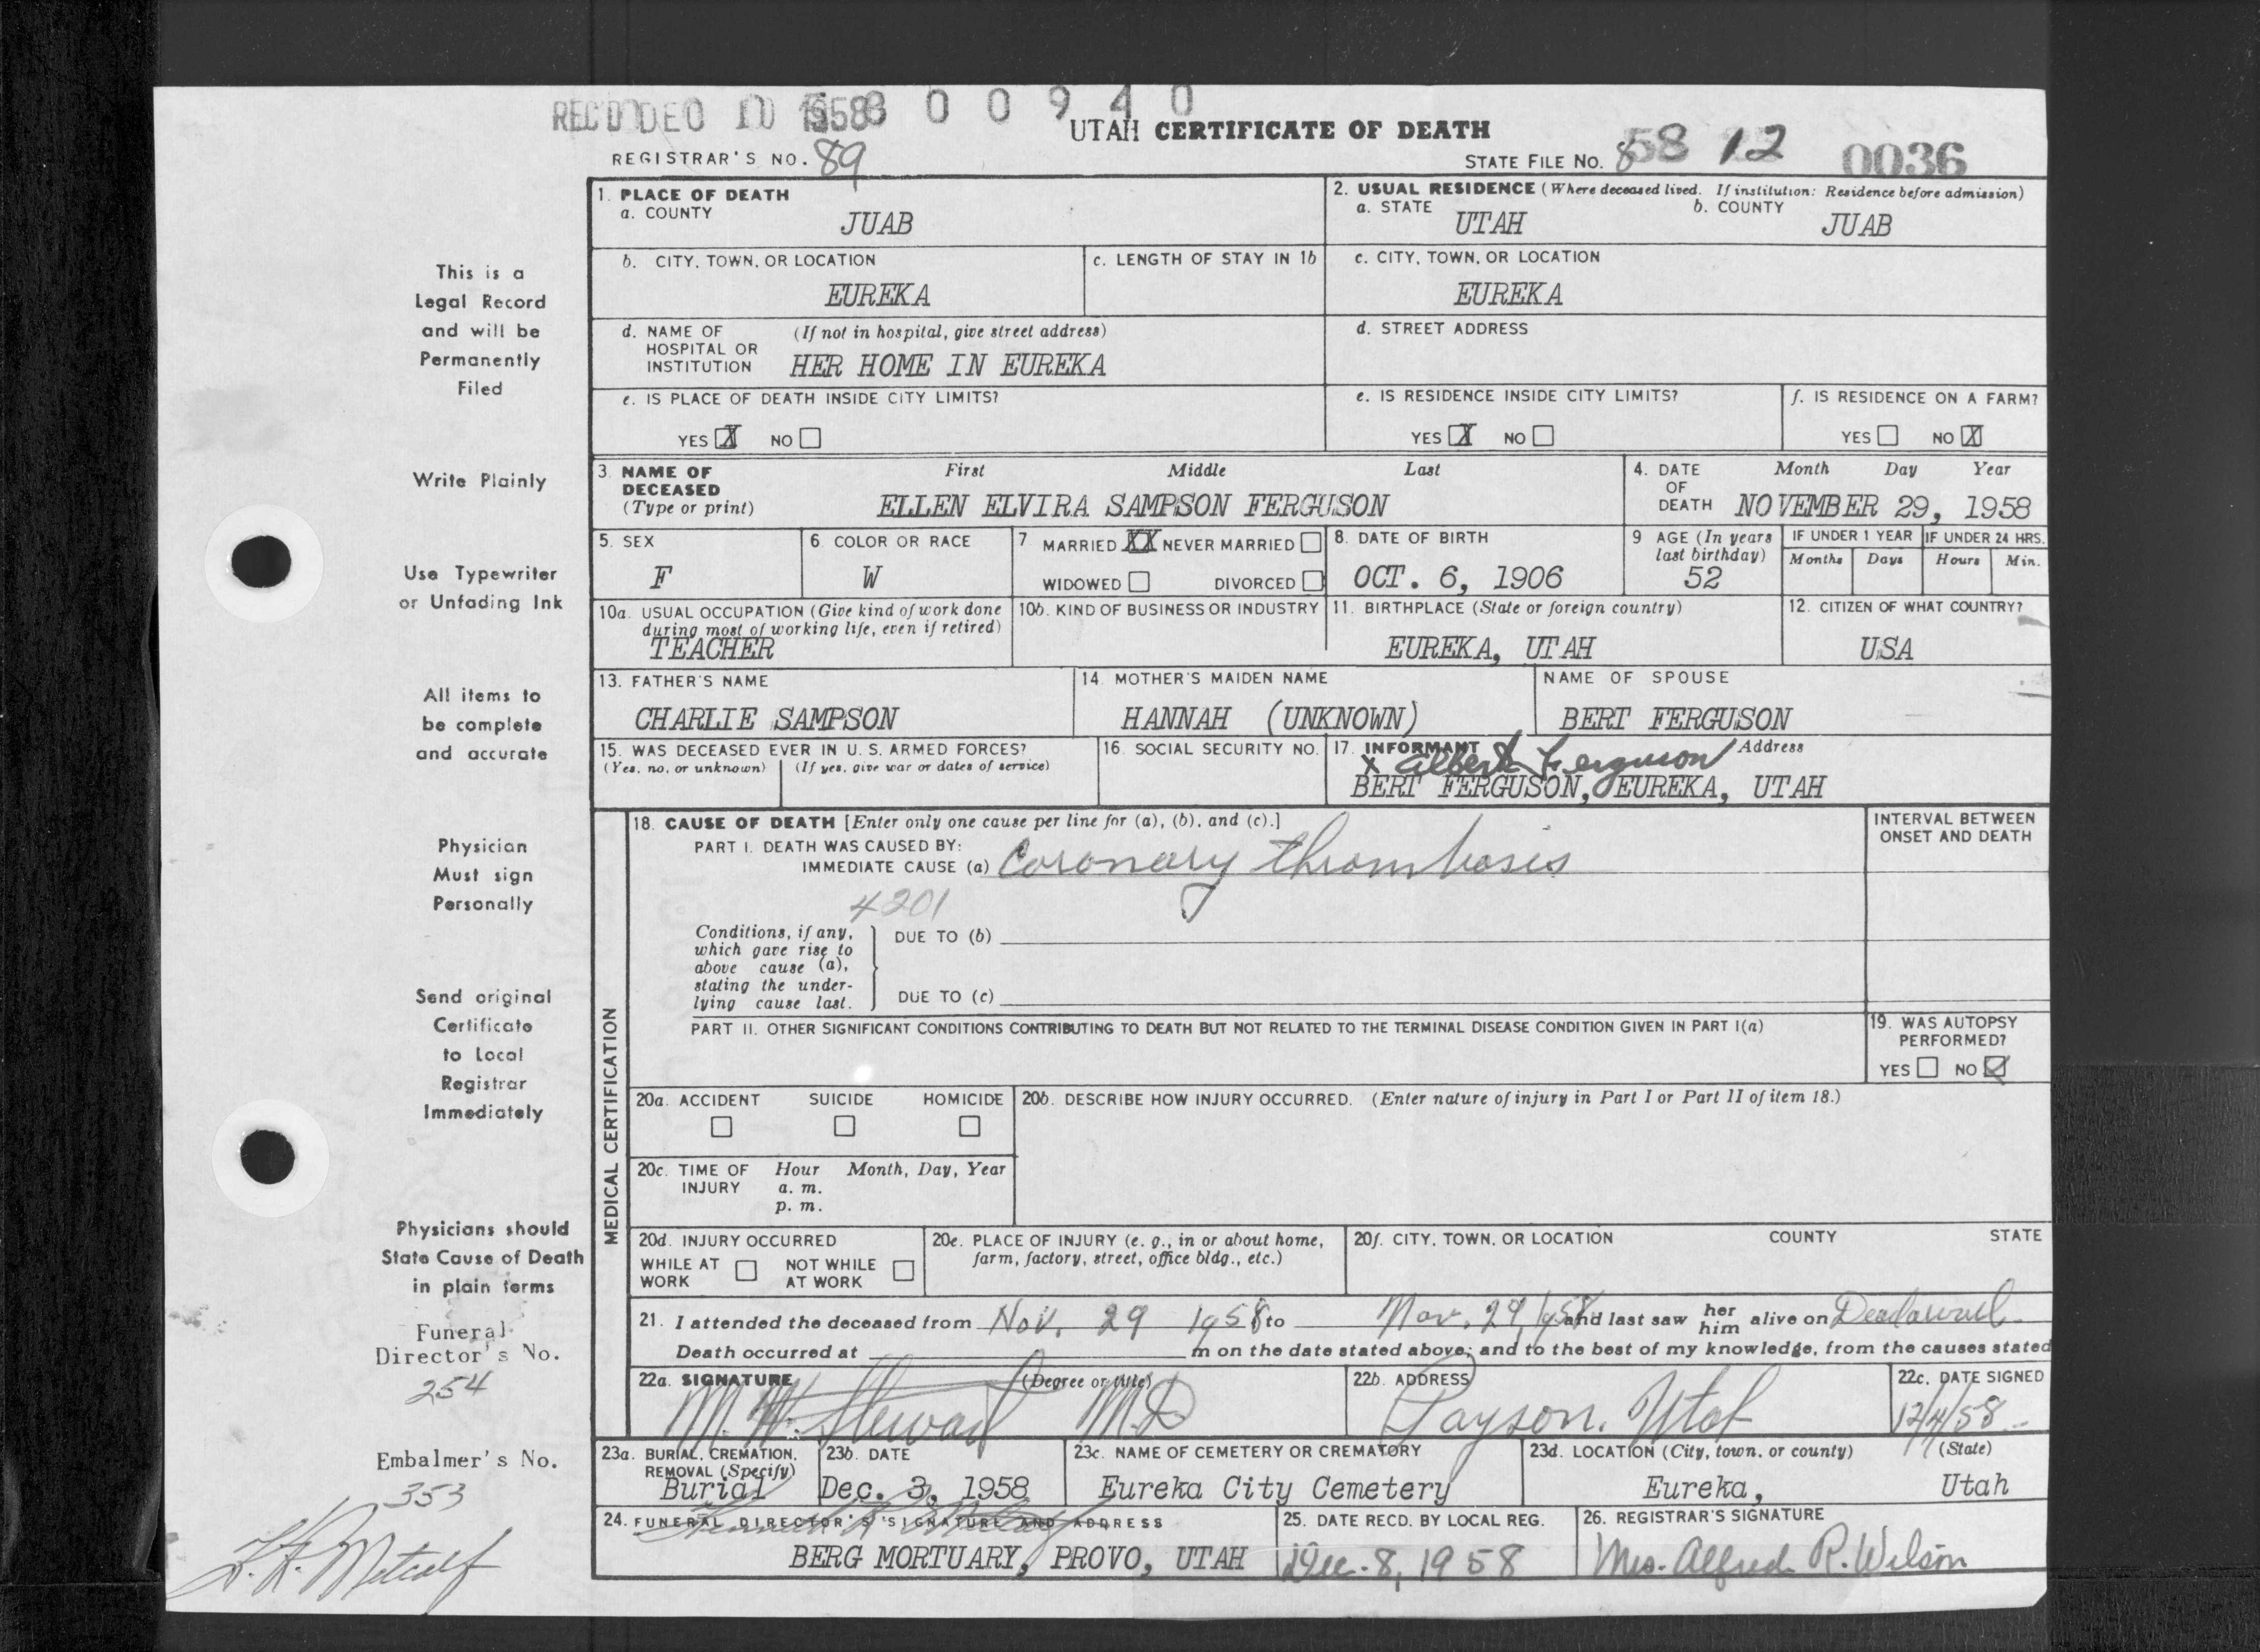 REC'D DEC 10 1958 0 0 9 4 0
UTAH CERTIFICATE OF DEATH
REGISTRAR'S NO. 89
STATE FILE NO. 58 12 0036
1. PLACE OF DEATH
a. COUNTY
JUAB
2. USUAL RESIDENCE (Where deceased lived. If institution: Residence before admission)
a. STATE b. COUNTY
UTAH JUAB
b. CITY, TOWN, OR LOCATION
EUREKA
c. LENGTH OF STAY IN 1b
c. CITY, TOWN, OR LOCATION
EUREKA
d. NAME OF HOSPITAL OR INSTITUTION (If not in hospital, give street address)
HER HOME IN EUREKA
d. STREET ADDRESS
e. IS PLACE OF DEATH INSIDE CITY LIMITS?
YES X NO
e. IS RESIDENCE INSIDE CITY LIMITS?
YES X NO
f. IS RESIDENCE ON A FARM?
YES NO X
3. NAME OF DECEASED (Type or print) First Middle Last
ELLEN ELVIRA SAMPSON FERGUSON
4. DATE OF DEATH Month Day Year
NOVEMBER 29, 1958
5. SEX
F
6. COLOR OR RACE
W
7 MARRIED XX NEVER MARRIED
WIDOWED DIVORCED
8. DATE OF BIRTH
OCT. 6, 1906
9 AGE (In years last birthday)
52
IF UNDER 1 YEAR
Months Days
IF UNDER 24 HRS.
Hours Min.
10a. USUAL OCCUPATION (Give kind of work done during most of working life, even if retired)
TEACHER
10b. KIND OF BUSINESS OR INDUSTRY
11. BIRTHPLACE (State or foreign country)
EUREKA, UTAH
12. CITIZEN OF WHAT COUNTRY?
USA
13. FATHER'S NAME
CHARLIE SAMPSON
14. MOTHER'S MAIDEN NAME
HANNAH (UNKNOWN)
NAME OF SPOUSE
BERT FERGUSON
15. WAS DECEASED EVER IN U. S. ARMED FORCES?
(Yes, no, or unknown) (If yes, give war or dates of service)
16. SOCIAL SECURITY NO.
17. INFORMANT Address
X Albert Ferguson
BERT FERGUSON, EUREKA, UTAH
MEDICAL CERTIFICATION
18. CAUSE OF DEATH [Enter only one cause per line for (a), (b), and (c).]
PART I. DEATH WAS CAUSED BY:
IMMEDIATE CAUSE (a) Coronary thrombosis
4201
Conditions, if any, which gave rise to above cause (a), stating the underlying cause last.
DUE TO (b)
DUE TO (c)
INTERVAL BETWEEN ONSET AND DEATH
PART II. OTHER SIGNIFICANT CONDITIONS CONTRIBUTING TO DEATH BUT NOT RELATED TO THE TERMINAL DISEASE CONDITION GIVEN IN PART I(a)
19. WAS AUTOPSY PERFORMED?
YES NO ✓
20a. ACCIDENT SUICIDE HOMICIDE
20b. DESCRIBE HOW INJURY OCCURRED. (Enter nature of injury in Part I or Part II of item 18.)
20c. TIME OF INJURY Hour Month, Day, Year
a. m.
p. m.
20d. INJURY OCCURRED
WHILE AT WORK NOT WHILE AT WORK
20e. PLACE OF INJURY (e. g., in or about home, farm, factory, street, office bldg., etc.)
20f. CITY, TOWN, OR LOCATION COUNTY STATE
21. I attended the deceased from Nov. 29 1958 to Nov. 29, 1958 and last saw her him alive on
Death occurred at m on the date stated above; and to the best of my knowledge, from the causes stated
22a. SIGNATURE (Degree or title)
M. W. Stewart MD
22b. ADDRESS
Payson, Utah
22c. DATE SIGNED
12/4/58
23a. BURIAL, CREMATION, REMOVAL (Specify)
Burial
23b. DATE
Dec. 3, 1958
23c. NAME OF CEMETERY OR CREMATORY
Eureka City Cemetery
23d. LOCATION (City, town, or county) (State)
Eureka, Utah
24. FUNERAL DIRECTOR'S SIGNATURE AND ADDRESS
BERG MORTUARY, PROVO, UTAH
25. DATE RECD. BY LOCAL REG.
Dec. 8, 1958
26. REGISTRAR'S SIGNATURE
Mrs. Alfred R. Wilson
This is a
Legal Record
and will be
Permanently
Filed
Write Plainly
Use Typewriter
or Unfading Ink
All items to
be complete
and accurate
Physician
Must sign
Personally
Send original
Certificate
to Local
Registrar
Immediately
Physicians should
State Cause of Death
in plain terms
Funeral
Director's No.
254
Embalmer's No.
353
Metcalf